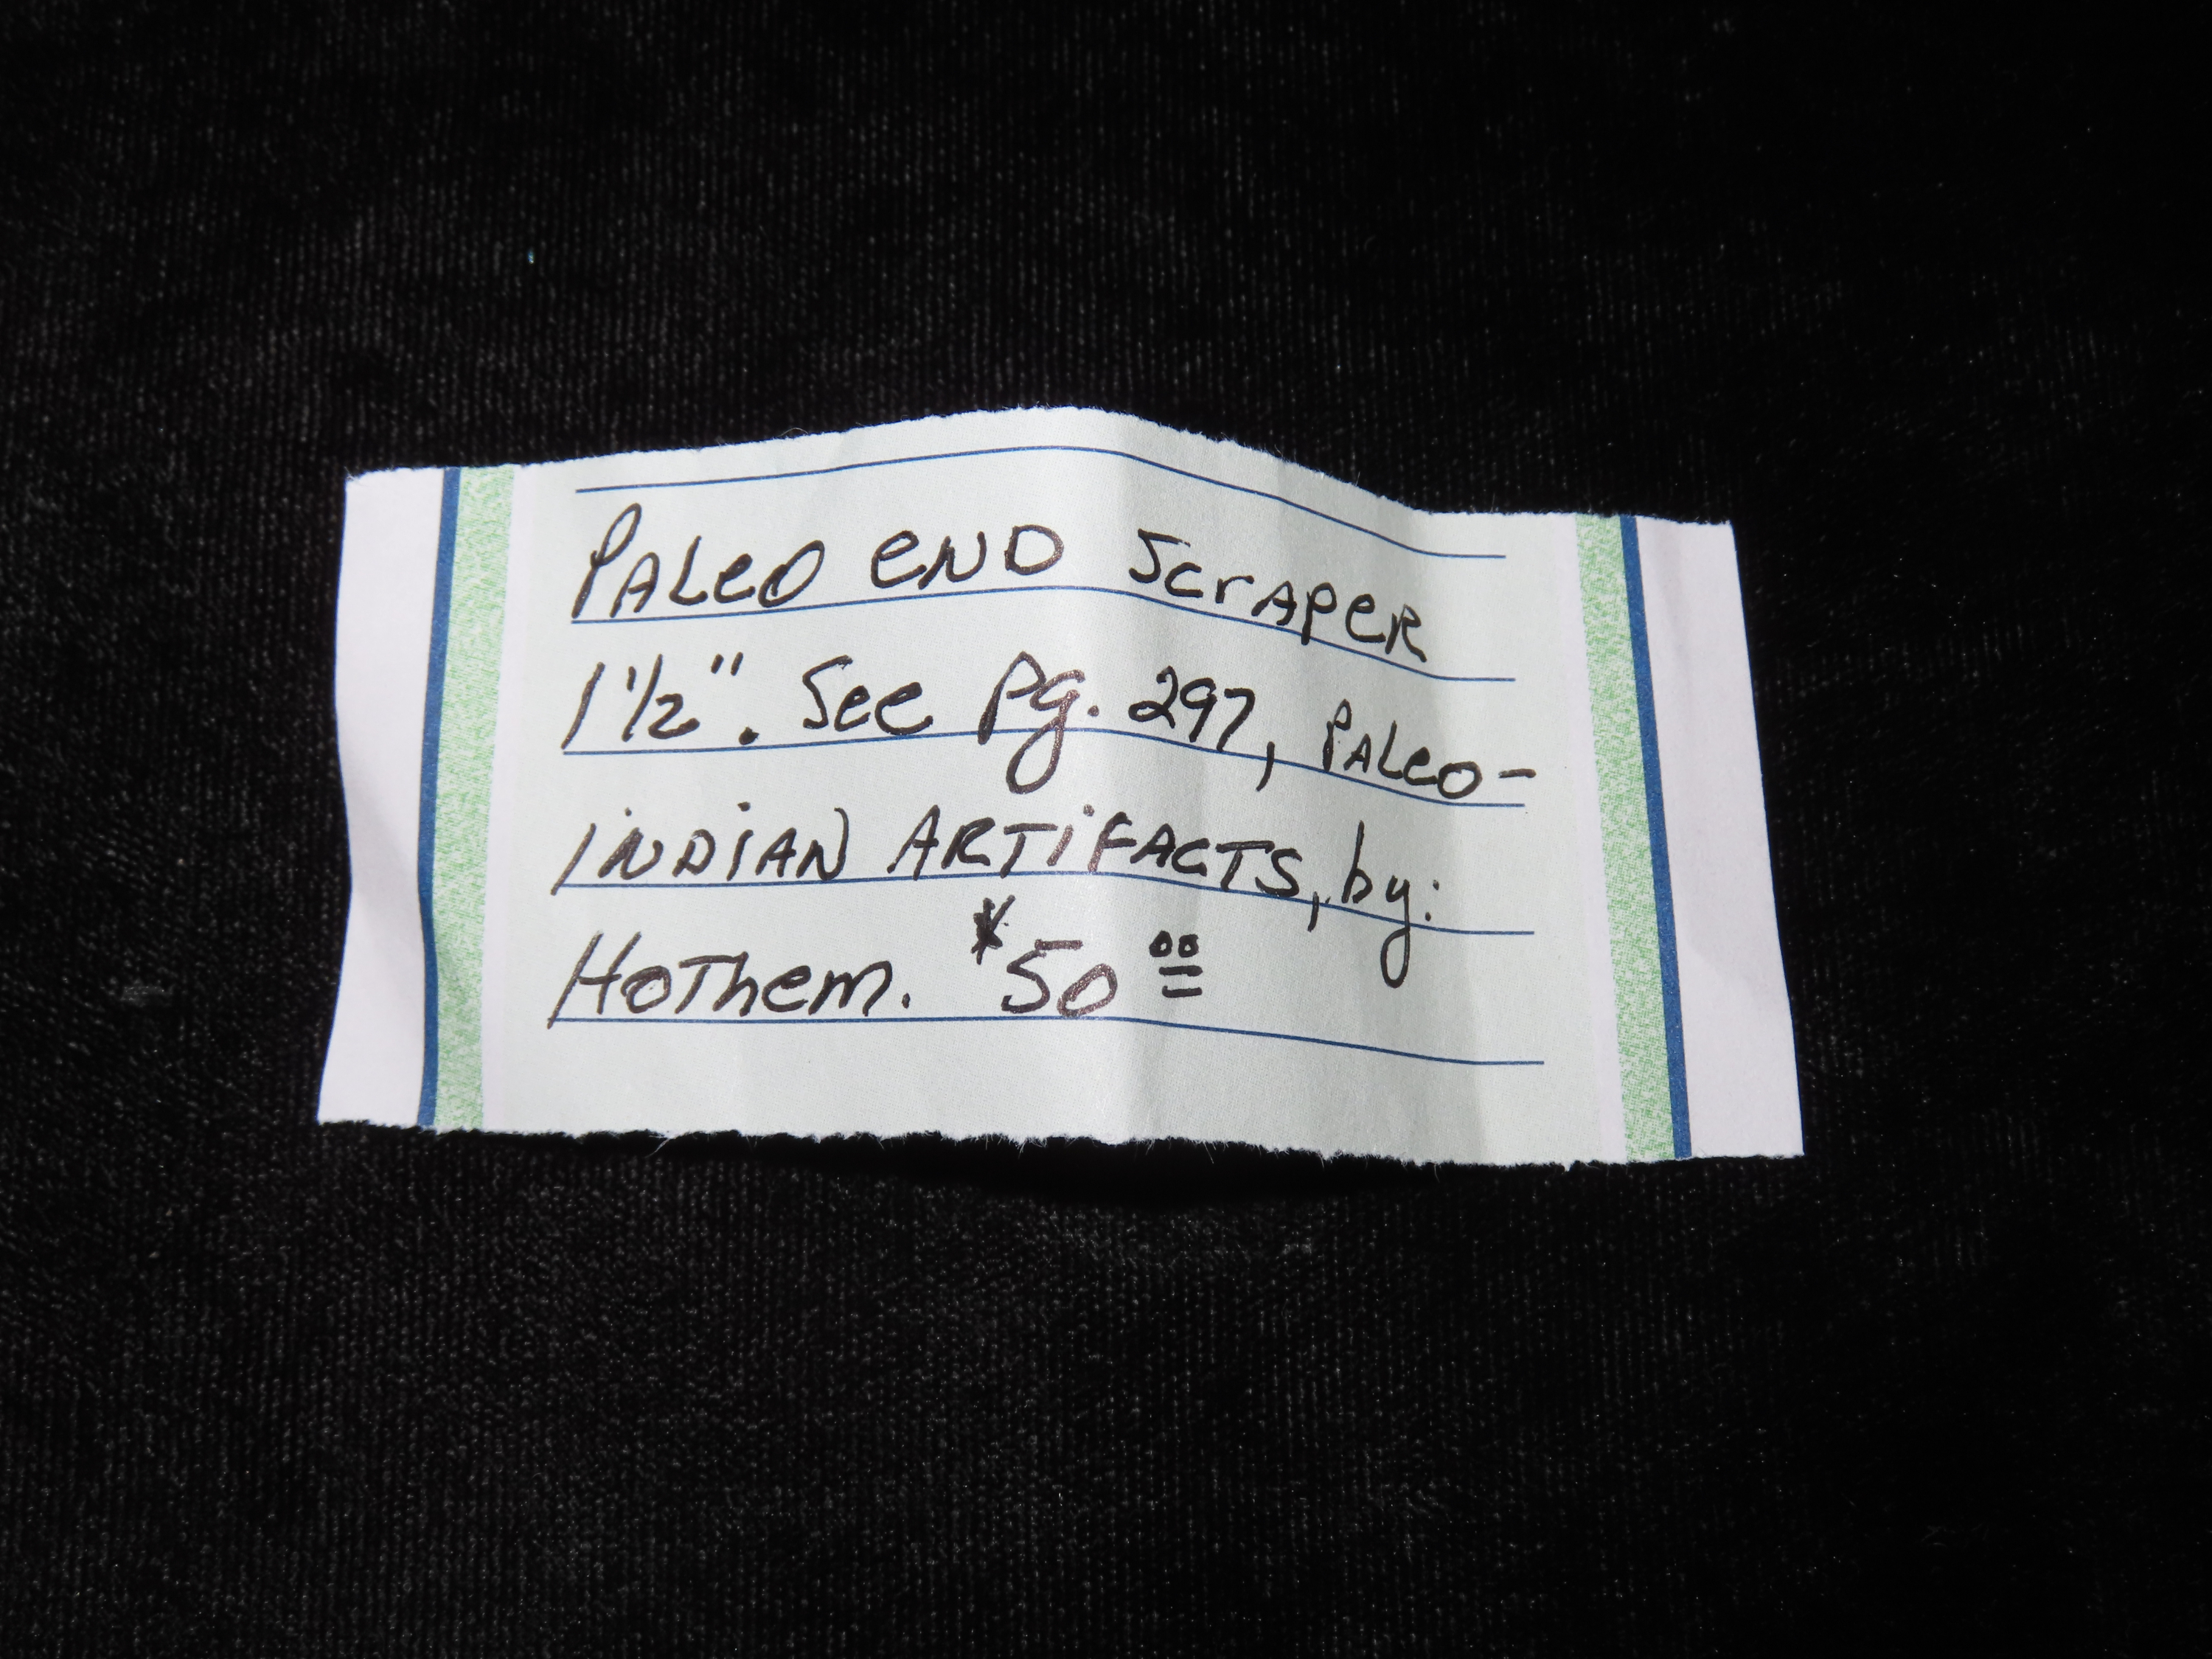 PALeO eND ScrAPeR
1 1/2". See pg. 297, PALeO-
iNDiAN ARTiFACTS, by:
HoThem. $50 00